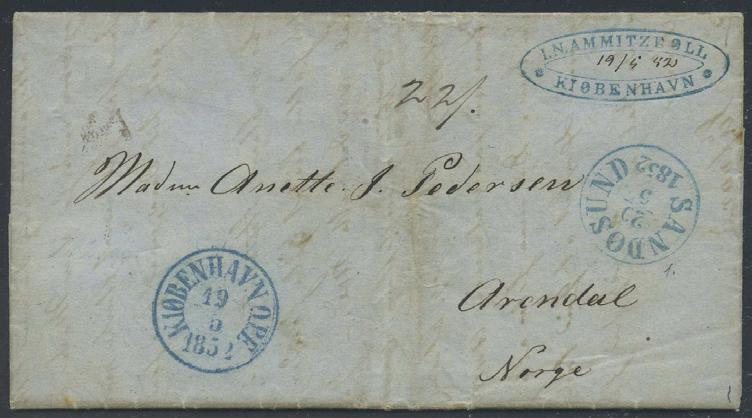 I.N. AMMITZBØLL
19/5 52
KIØBENHAVN
22/.
Madme Anette J. Pedersen
SANDØSUND
20
5
1852
KIØBENHAVN O.P.E.
19
5
1852
Arendal
Norge